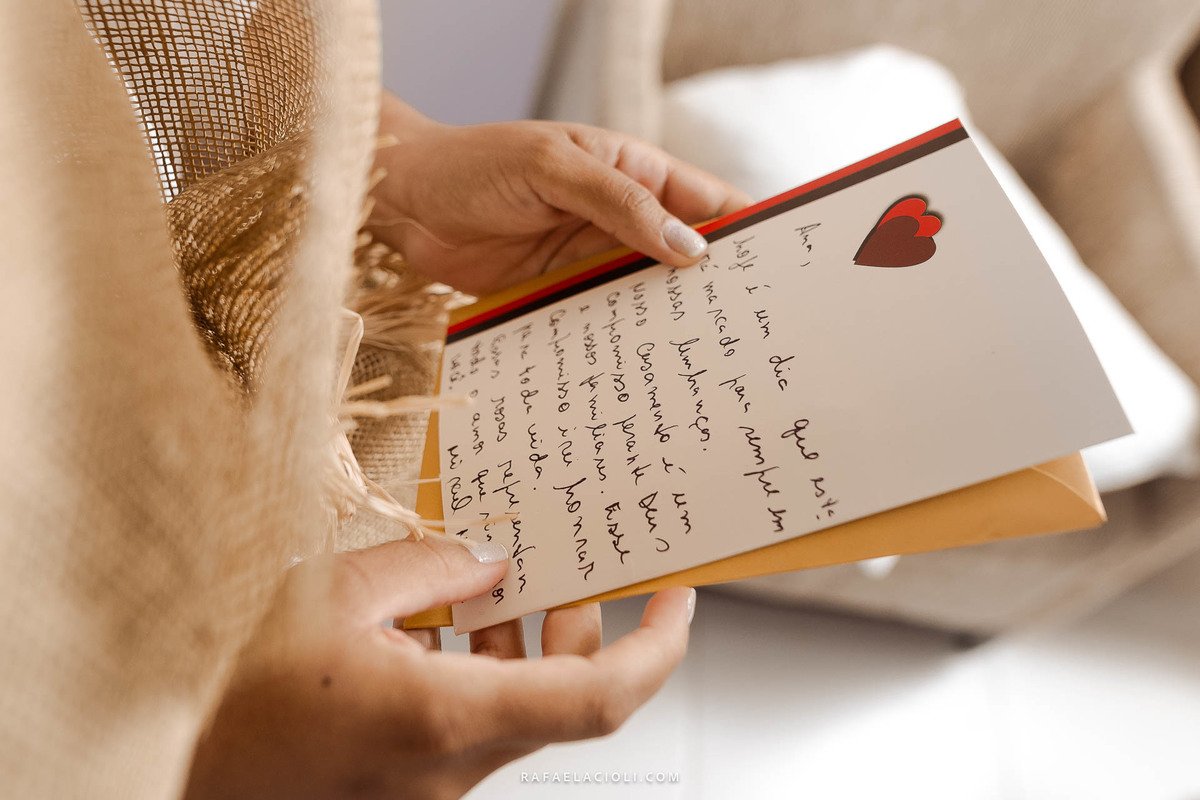 Ana,
hoje é um dia que está
rá marcado para sempre em
nossas lembranças.
Nosso casamento é um
compromisso perante Deus
e nossos familiares. Esse
compromisso irei honrar
para toda vida.
Essas rosas representam
todo o amor que sin
você.
RAFAELACIOLI.COM